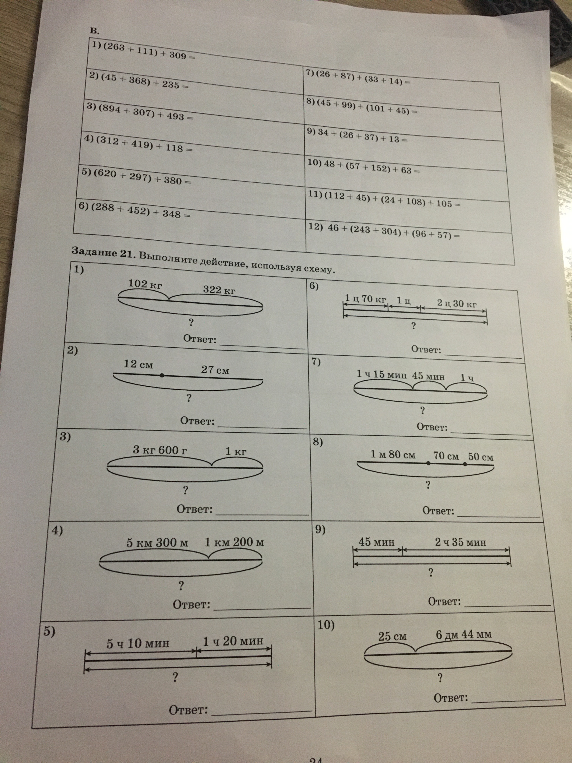 В.
1) (263 + 111) + 309 =
2) (45 + 368) + 235 =
3) (894 + 307) + 493 =
4) (312 + 419) + 118 =
5) (620 + 297) + 380 =
6) (288 + 452) + 348 =
7) (26 + 87) + (33 + 14) =
8) (45 + 99) + (101 + 45) =
9) 34 + (26 + 37) + 13 =
10) 48 + (57 + 152) + 63 =
11) (112 + 45) + (24 + 108) + 105 =
12) 46 + (243 + 304) + (96 + 57) =
Задание 21. Выполните действие, используя схему.
1)
102 кг 322 кг
?
Ответ:
2)
12 см 27 см
?
Ответ:
3)
3 кг 600 г 1 кг
?
Ответ:
4)
5 км 300 м 1 км 200 м
?
Ответ:
5)
5 ч 10 мин 1 ч 20 мин
?
Ответ:
6)
1 ц 70 кг 1 ц 2 ц 30 кг
?
Ответ:
7)
1 ч 15 мин 45 мин 1 ч
?
Ответ:
8)
1 м 80 см 70 см 50 см
?
Ответ:
9)
45 мин 2 ч 35 мин
?
Ответ:
10)
25 см 6 дм 44 мм
?
Ответ: